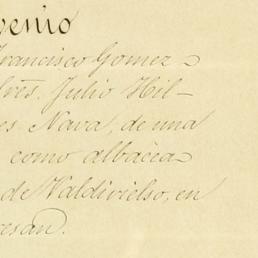 venio
Francisco Gomez
Sres. Julio Hil-
es Nava, de una
como albacea
de Valdivielso, en
resan.